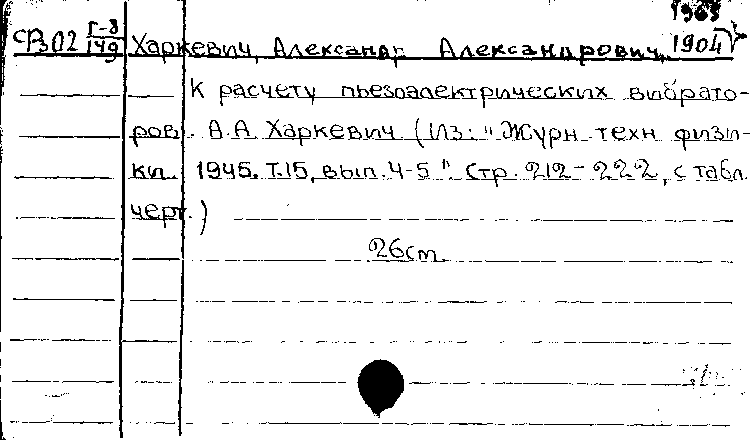 1965
СВ02 Г-8/149 Харкевич, Александр Александрович, 1904
К расчету пьезоэлектрических вибрато-
ров. А.А. Харкевич (Из: "Журн. техн. физи-
ки. 1945. Т.15, вып. 4-5". Стр. 212-222, с табл.
черт.)
26 см.